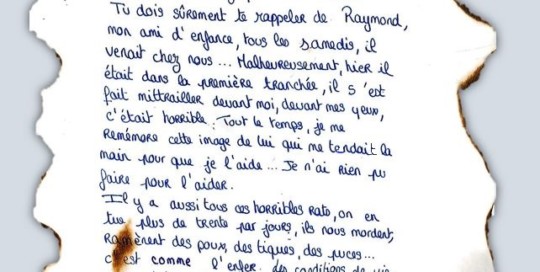 Tu dois sûrement te rappeler de Raymond,
mon ami d'enfance, tous les samedis, il
venait chez nous... Malheureusement, hier il
était dans la première tranchée, il s'est
fait mittrailler devant moi, devant mes yeux,
c'était horrible. Tout le temps, je me
remémore cette image de lui qui me tendait la
main pour que je l'aide... Je n'ai rien pu
faire pour l'aider.
Il y a aussi tous ces horribles rats, on en
tue plus de trente par jours, ils nous mordent,
Ramènent des poux, des tiques, des puces...
c'est comme l'enfer. des conditions de vie